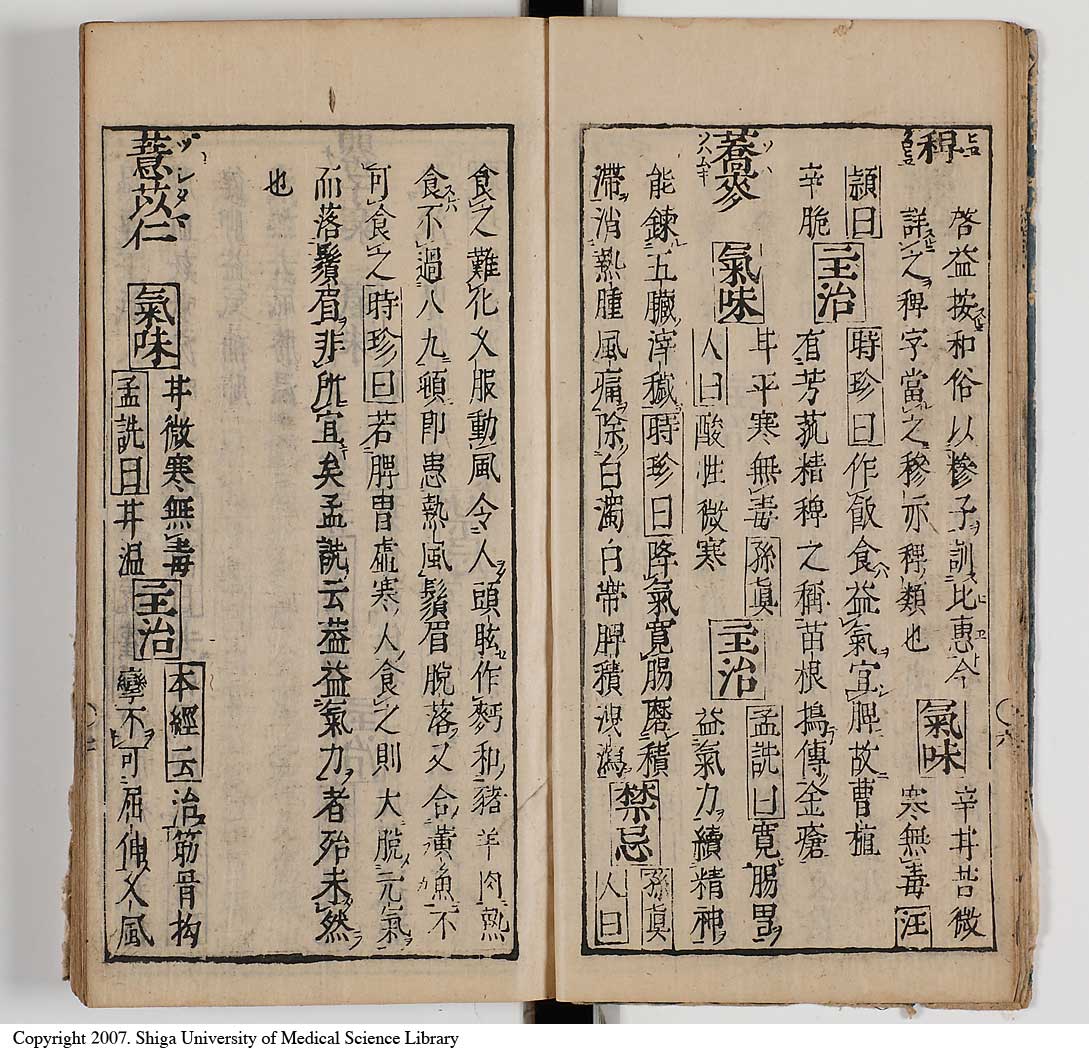 稗
啓益按和俗以穇子訓比惠今
詳之稗字當之穇亦稗類也
氣味
辛甘苦微
寒無毒汪
頴曰
辛脆
主治
時珍曰作飯食益氣宜脾故曹植
有芳菰精稗之稱苗根搗傳金瘡
蕎麥
ソハ
ソハムギ
氣味
甘平寒無毒孫眞
人曰酸性微寒
主治
孟詵曰寬腸胃
益氣力續精神
能鍊五臟滓穢時珍曰降氣寬腸磨積
滯消熱腫風痛除白濁白帶脾積洩瀉
禁忌
孫眞
人曰
食之難化久服動風令人頭眩作麪和豬羊肉熱
食不過八九頓即患熱風鬚眉脫落又合黃魚不
可食之時珍曰若脾胃虛寒人食之則大脫元氣
而落鬚眉非所宜矣孟詵云葢益氣力者殆未然
也
薏苡仁
氣味
甘微寒無毒
孟詵曰甘温
主治
本經云治筋骨拘
攣不可屈伸久風
Copyright 2007. Shiga University of Medical Science Library